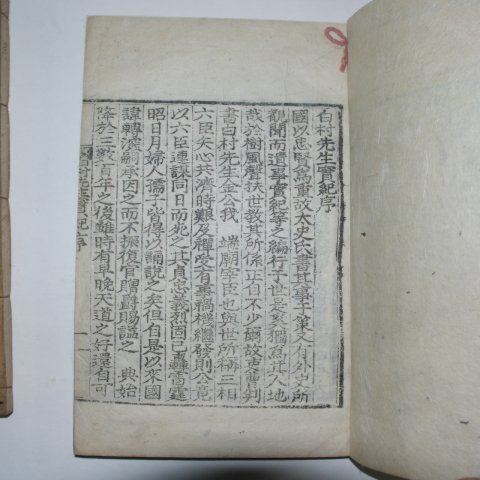 白村先生實紀序
國以忠賢爲重故太史氏書其事于策又有外史所
觀聞而遺事實紀等之編行于世是奚獨爲其人地
哉於樹風聲扶世敎其所係正自不少爾故吏曹判
書白村先生金公我 端廟宰臣也與世所稱三相
六臣矢心共濟時艱及禪受有事禍機繼發則公竟
以六臣連謀同日而死之其貞忠義烈固已轟雷霆
昭日月婦人孺子皆得以誦說之矣但自是以來國
諱轉深嗣承因之而不振復官贈爵賜諡之 典始
降於三數百年之後雖時有早晩天道之好還自可
白村先生實紀序 一